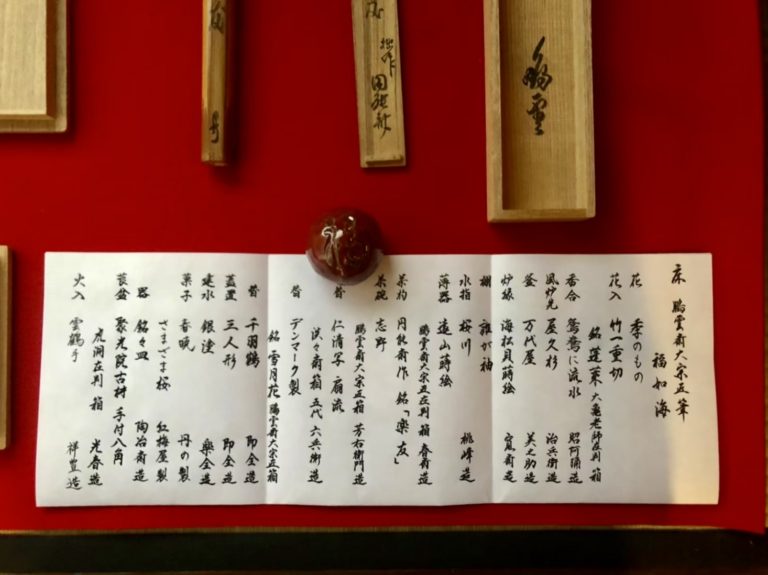 鵬雲
床　鵬雲斎大宗匠筆
福如海
花　季のもの
花入　竹一重切
銘 蓬莱 大亀老師在判 箱
香合　鴛鴦に流水　昭阿弥造
風炉先　屋久杉　治兵衛造
釜　万代屋　美之助造
炉縁　海松貝蒔絵　嵐斎造
棚　誰が袖
水指　桜川　桃峰造
薄器　遠山蒔絵
鵬雲斎大宗匠在判 箱 春斎造
茶杓　円能斎作 銘「楽友」
茶碗　志野
鵬雲斎大宗匠箱 芳右衛門造
替　仁清写 扇流
淡々斎箱 五代 六兵衛造
替　デンマーク製
銘 雪月花 鵬雲斎大宗匠箱
替　千羽鶴　即全造
蓋置　三人形　即全造
建水　銀塗　楽全造
菓子　春暁　丹の製
さまざま桜　紅梅屋製
器　銘々皿　陶冶斎造
莨盆　聚光院古材 手付八角
虎洞在判 箱　光春造
火入　雲鶴手　祥豊造